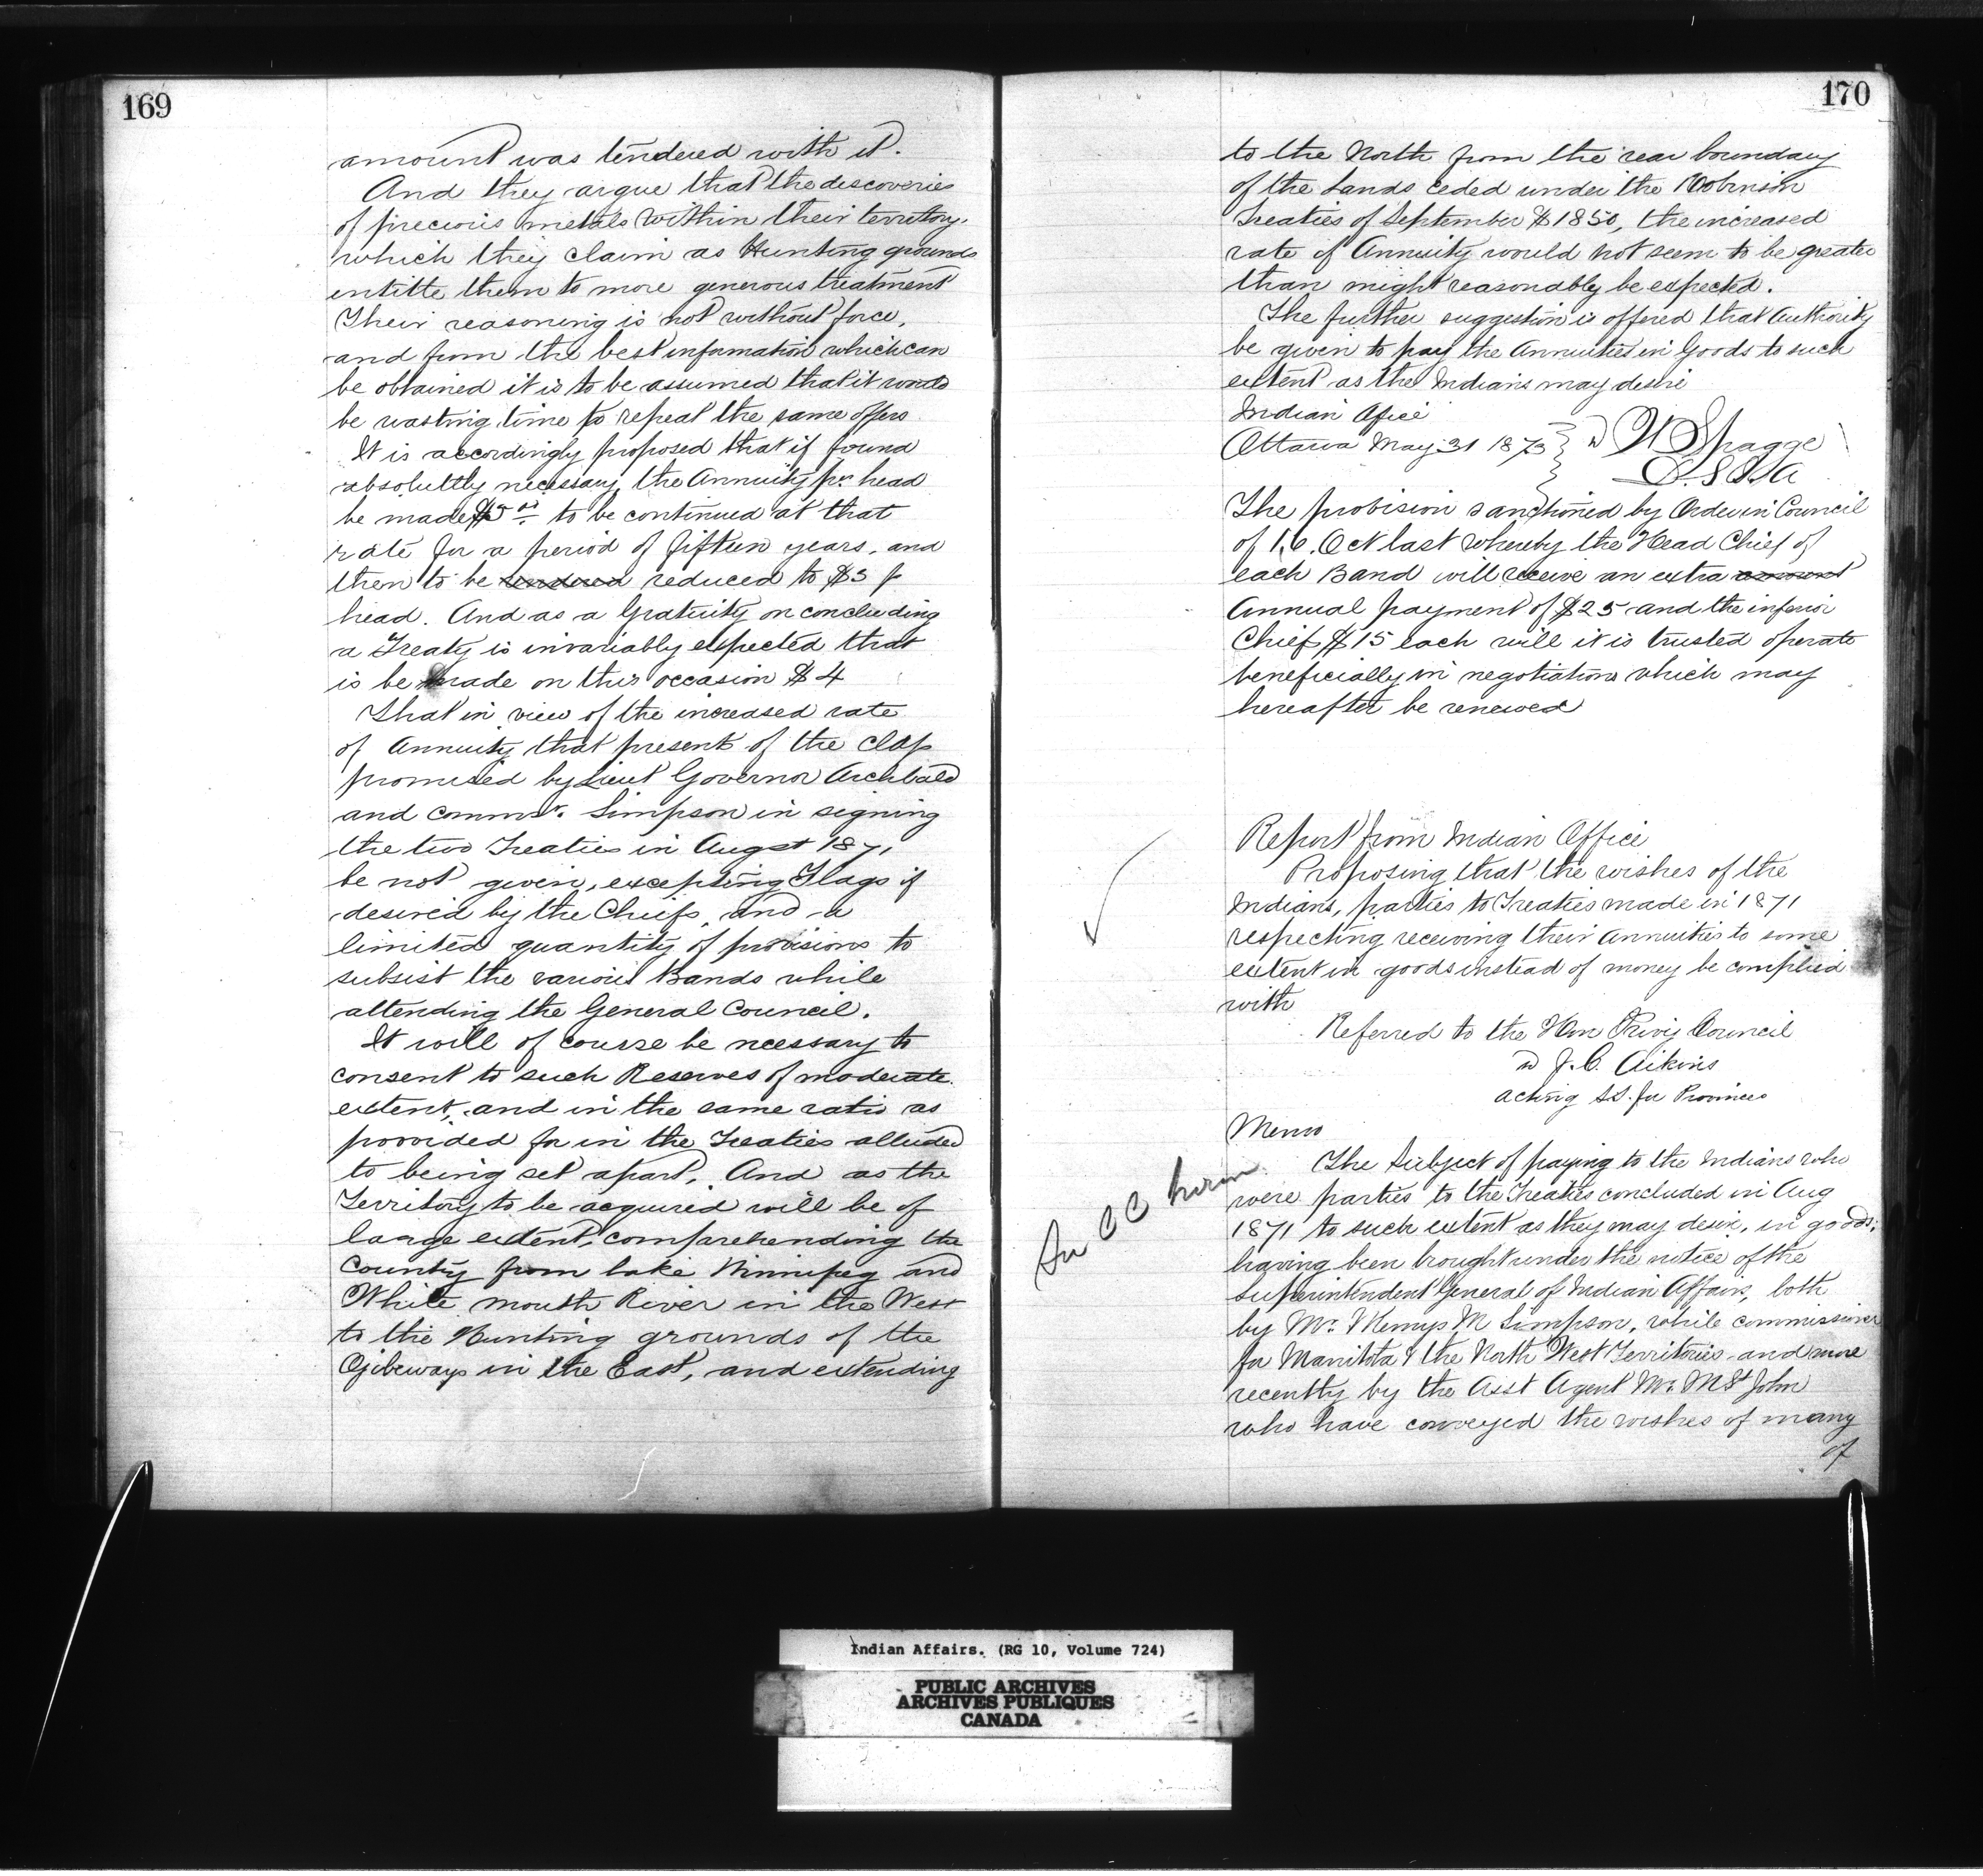 169
amount was tendered with it.
And they argue that the discoveries
of precious metals within their territory,
which they claim as Hunting grounds
entitte them to more generous treatment
Their reasoning is not without force,
and from the best information which can
be obtained it is to be assumed that it would
be wasting time to repeat the same offers
It is accordingly proposed that if found
absolultly necessary the Annuity pr head
be made $5 00 to be continued at that
rate for a period of fifteen years, and
then to be reduced to $3 p
head. And as a Gratuity on concluding
a Treaty is invariably expected that
is be made on this occasion $4
That in view of the increased rate
of Annuity that presents of the class
promised by Lieut Governor Archibald
and commr. Simpson in signing
the two Treaties in August 1871
be not given, excepting Flags if
desired by the Chiefs, and a
limited quantity of provisions to
subsist the various Bands while
attending the General Council.
It will of course be necessary to
consent to such Reserves of moderate
extent, and in the same ratio as
provided for in the Treaties alluded
to being set apart. And as the
Territory to be acquired will be of
large extent, comprehending the
County from lake Winnipeg and
White mouth River in the West
to the Hunting grounds of the
Ojibeways in the East, and extending
170
to the North from the rear boundary
of the Lands ceded under the Robinson
Treaties of September 1850, the increased
rate of Annuity would not seem to be greater
than might reasonably be expected.
The further suggestion is offered that Authority
be given to pay the Annuities in Goods to such
extent as the Indians may desire
Indian Office
Ottawa May 31 1873 } W Spragge
D.S.S.I.A
The provision sanctioned by Order in Council
of 16. Oct last whereby the Head Chief of
each Band will receive an extra amount
Annual payment of $25 and the inferior
Chief $15 each will it is trusted operate
beneficially in negotiations which may
hereafter be renewed
Report from Indian Office
Proposing that the wishes of the
Indians, parties to Treaties made in 1871
respecting receiving their Annuities to some
extent in goods instead of money be complied
with
Referred to the Hon Privy Council
J. C. Aikins
acting SS. for Provinces
Memo
The Subject of paying to the Indians who
were parties to the Treaties concluded in Aug
1871 to such extent as they may desire, in goods;
having been brought under the notice of the
Superintendent General of Indian Affairs, both
by Mr. Wemys M Simpson, while commissioner
for Manitota & the North West Territories and more
recently by the Asst Agent Mr. M St John
who have conveyed the wishes of many
of
Indian Affairs. (RG 10, Volume 724)
PUBLIC ARCHIVES
ARCHIVES PUBLIQUES
CANADA